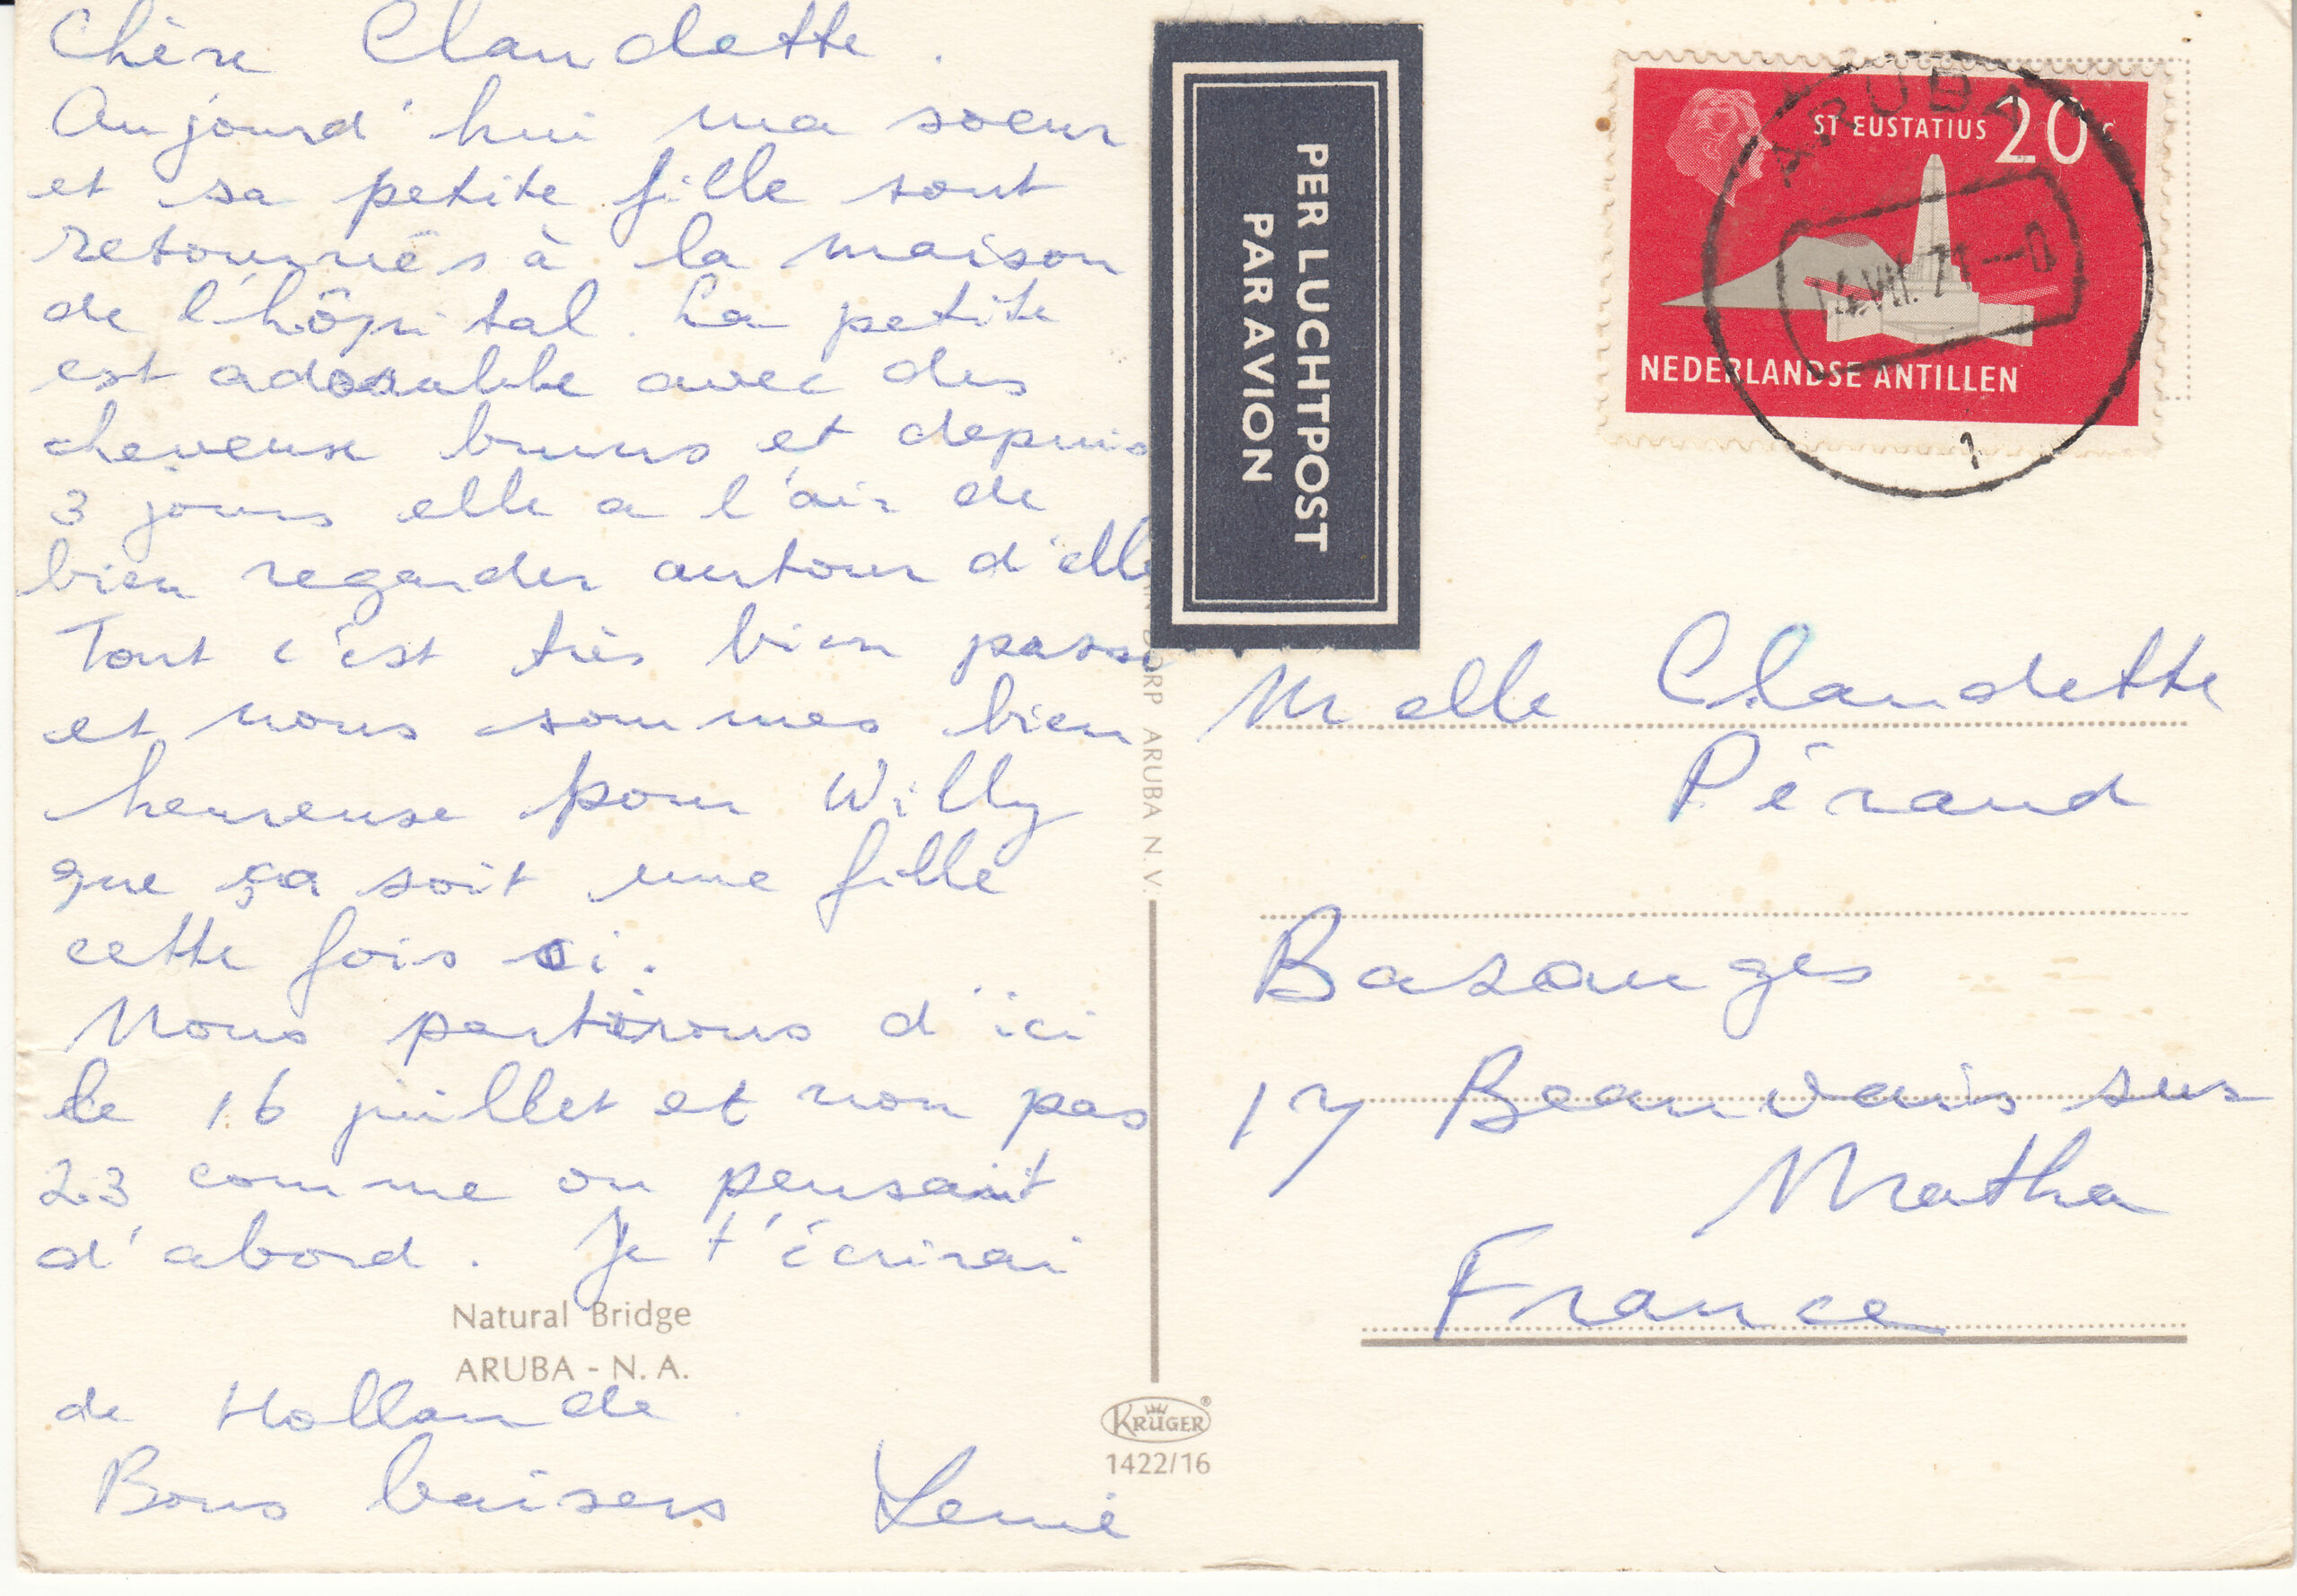 Chère Claudette.
Aujourd'hui ma soeur
et sa petite fille sont
retournés à la maison
de l'hôpital. La petite
est adorable avec des
cheveux bruns et depuis
3 jours elle a l'air de
bien regarder autour d'elle
Tout c'est très bien passé
et nous sommes bien
heureuse pour Willy
que ça soit une fille
cette fois ci.
Nous partirons d'ici
le 16 juillet et non pas
23 comme on pensait
d'abord. Je t'écrirai
Natural Bridge
ARUBA - N. A.
de Hollande.
Bons baisers
DORP ARUBA N.V.
KRÜGER®
1422/16
PER LUCHTPOST
PAR AVION
ARUBA
ST EUSTATIUS 20 c
VII. 71
NEDERLANDSE ANTILLEN
1
Melle Claudette
Péraud
Basanges
17 Beauvais sur
Matha
France